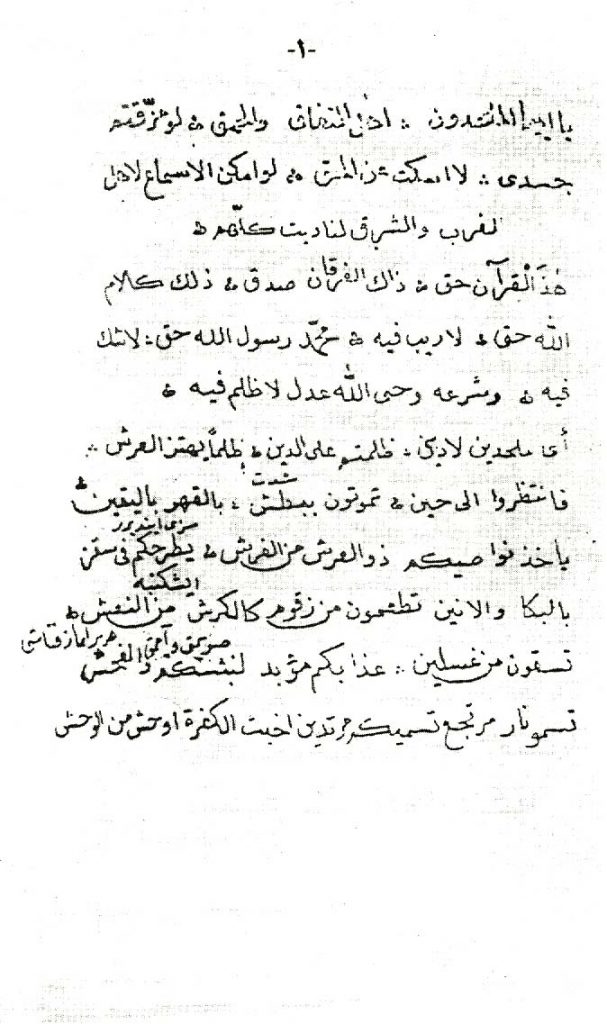 -١-
يا ايها الملحدون ۞ اهل النفاق والحمق ۞ لو مزّقتم
جسدى ۞ لا اسكت عن الحق ۞ لو امكن الاسماع لاهل
الغرب والشرق لناديت كلّهم ۞
هٰذَا لْقرآن حق ۞ ذاك الفرقان صدق ۞ ذلك كلام
الله حق ۞ لا ريب فيه ۞ محمّد رسول الله حق ۞ لا شك
فيه ۞ وشرعه وحى الله عدل لا ظلم فيه ۞
أى ملحدين لادينى ۞ ظلمتم على الدين ۞ ظلماً يهتز العرش ۞
شدت
فانتظروا الى حين ۞ تموتون ببطش ۞ بالقهر باليقين ۞
يأخذ نواصيكم ذوالعرش من الفرش ۞ يطرحكم فى سقر
ايشكنبه
بالبكا والانين تطعمون من زقوم كالكرش من النعش ۞
تسقون من غسلين ۞ عذابكم مؤبد لنبشكم
نار تسميكم مرتدين اخبث الكفرة اوحش من الوحش